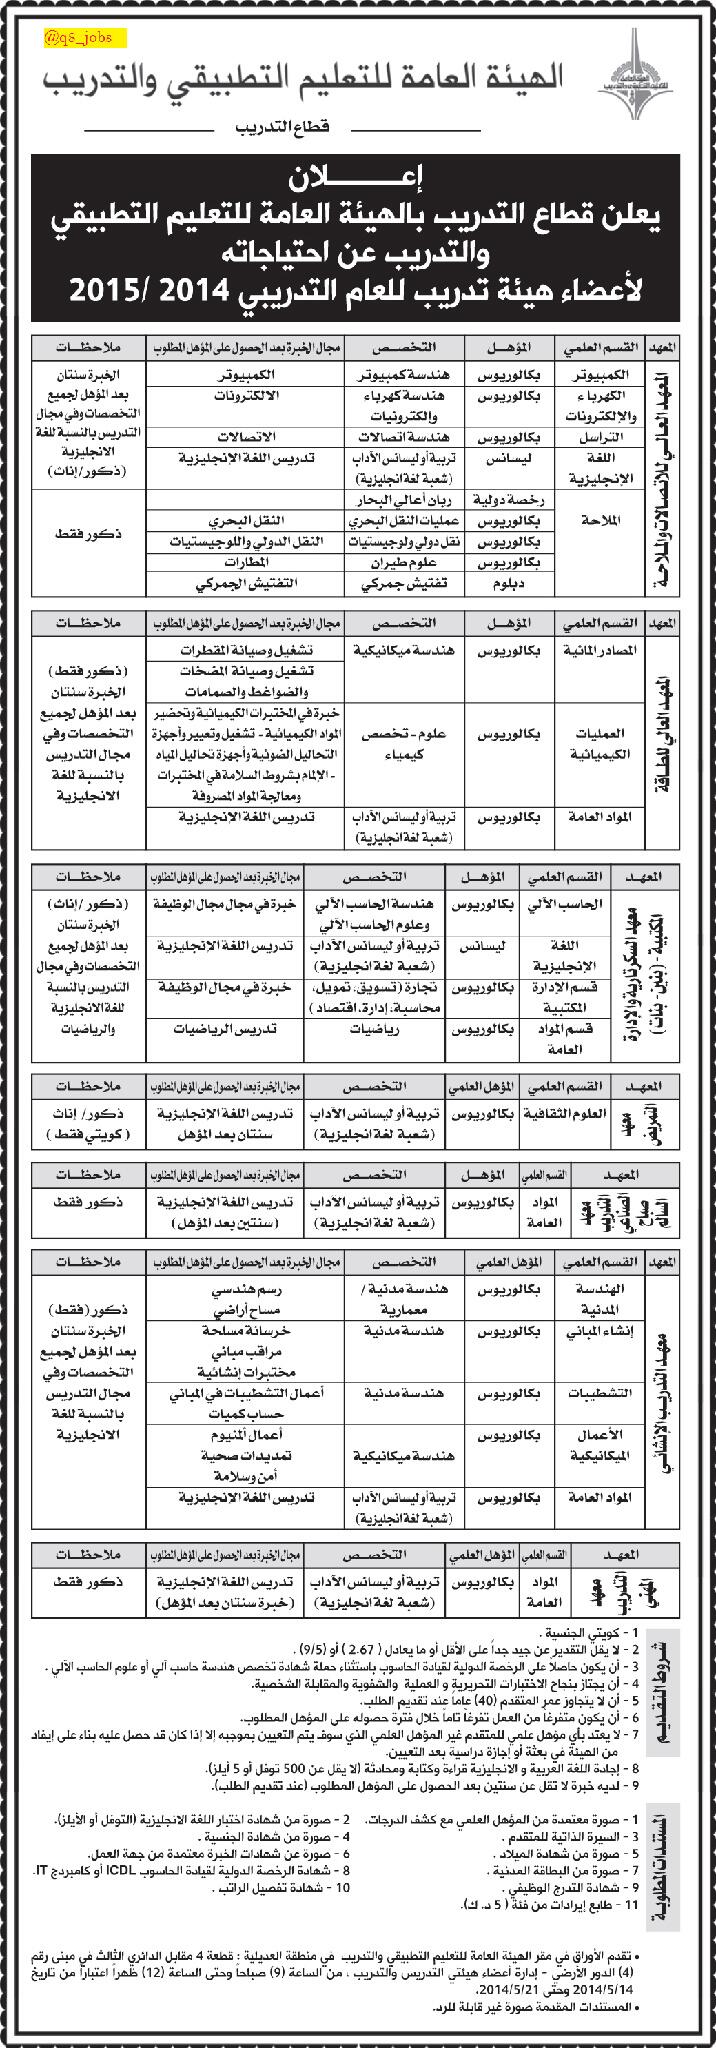 @q8_jobs
الهيئة العامة للتعليم التطبيقي والتدريب
قطاع التدريب
إعـــــلان
يعلن قطاع التدريب بالهيئة العامة للتعليم التطبيقي
والتدريب عن احتياجاته
لأعضاء هيئة تدريب للعام التدريبي 2014 /2015
المعهد القسم العلمي المؤهل التخصص مجال الخبرة بعد الحصول على المؤهل المطلوب ملاحظات
المعهد العالي للاتصالات والملاحة
الكمبيوتر بكالوريوس هندسة كمبيوتر الكمبيوتر
الكهرباء والإلكترونات بكالوريوس هندسة كهرباء وإلكترونيات الالكترونات
التراسل بكالوريوس هندسة اتصالات الاتصالات
اللغة الإنجليزية ليسانس تربية أو ليسانس الآداب (شعبة لغة انجليزية) تدريس اللغة الإنجليزية
الخبرة سنتان
بعد المؤهل لجميع
التخصصات وفي مجال
التدريس بالنسبة للغة
الانجليزية
(ذكور/إناث)
الملاحة رخصة دولية ربان أعالي البحار
بكالوريوس عمليات النقل البحري النقل البحري
بكالوريوس نقل دولي ولوجيستيات النقل الدولي واللوجيستيات
بكالوريوس علوم طيران المطارات
دبلوم تفتيش جمركي التفتيش الجمركي
ذكور فقط
المعهد القسم العلمي المؤهل التخصص مجال الخبرة بعد الحصول على المؤهل المطلوب ملاحظات
المعهد العالي للطاقة
المصادر المائية بكالوريوس هندسة ميكانيكية تشغيل وصيانة المقطرات
تشغيل وصيانة المضخات
والضواغط والصمامات
العمليات الكيميائية بكالوريوس علوم - تخصص كيمياء
خبرة في المختبرات الكيميائية وتحضير
المواد الكيميائية - تشغيل وتعيير وأجهزة
التحاليل الضوئية وأجهزة تحاليل المياه
- الإلمام بشروط السلامة في المختبرات
ومعالجة المواد المصروفة
المواد العامة بكالوريوس تربية أو ليسانس الآداب (شعبة لغة انجليزية) تدريس اللغة الإنجليزية
(ذكور فقط)
الخبرة سنتان
بعد المؤهل لجميع
التخصصات وفي
مجال التدريس
بالنسبة للغة
الانجليزية
المعهد القسم العلمي المؤهل التخصص مجال الخبرة بعد الحصول على المؤهل المطلوب ملاحظات
معهد السكرتارية والإدارة
المكتبية - (بنين - بنات)
الحاسب الآلي بكالوريوس هندسة الحاسب الآلي وعلوم الحاسب الآلي خبرة في مجال مجال الوظيفة
اللغة الإنجليزية ليسانس تربية أو ليسانس الآداب (شعبة لغة انجليزية) تدريس اللغة الإنجليزية
قسم الإدارة المكتبية بكالوريوس تجارة (تسويق، تمويل، محاسبة، إدارة، اقتصاد) خبرة في مجال الوظيفة
قسم المواد العامة بكالوريوس رياضيات تدريس الرياضيات
(ذكور/إناث)
الخبرة سنتان
بعد المؤهل لجميع
التخصصات وفي مجال
التدريس بالنسبة
للغة الانجليزية
والرياضيات
المعهد القسم العلمي المؤهل العلمي التخصص مجال الخبرة بعد الحصول على المؤهل المطلوب ملاحظات
معهد التمريض العلوم الثقافية بكالوريوس تربية أو ليسانس الآداب (شعبة لغة انجليزية) تدريس اللغة الإنجليزية سنتان بعد المؤهل ذكور/ إناث (كويتي فقط)
المعهد القسم العلمي المؤهل التخصص مجال الخبرة بعد الحصول على المؤهل المطلوب ملاحظات
معهد التدريب الصناعي صباح السالم المواد العامة بكالوريوس تربية أو ليسانس الآداب (شعبة لغة انجليزية) تدريس اللغة الإنجليزية (سنتين بعد المؤهل) ذكور فقط
المعهد القسم العلمي المؤهل العلمي التخصص مجال الخبرة بعد الحصول على المؤهل المطلوب ملاحظات
معهد التدريب الإنشائي
الهندسة المدنية بكالوريوس هندسة مدنية / معمارية رسم هندسي
مساح أراضي
إنشاء المباني بكالوريوس هندسة مدنية خرسانة مسلحة
مراقب مباني
مختبرات إنشائية
التشطيبات بكالوريوس هندسة مدنية أعمال التشطيبات في المباني
حساب كميات
الأعمال الميكانيكية بكالوريوس هندسة ميكانيكية أعمال ألمنيوم
تمديدات صحية
أمن وسلامة
المواد العامة بكالوريوس تربية أو ليسانس الآداب (شعبة لغة انجليزية) تدريس اللغة الإنجليزية
ذكور (فقط)
الخبرة سنتان
بعد المؤهل لجميع
التخصصات وفي
مجال التدريس
بالنسبة للغة
الانجليزية
المعهد القسم العلمي المؤهل العلمي التخصص مجال الخبرة بعد الحصول على المؤهل المطلوب ملاحظات
معهد التدريب المهني المواد العامة بكالوريوس تربية أو ليسانس الآداب (شعبة لغة انجليزية) تدريس اللغة الإنجليزية (خبرة سنتان بعد المؤهل) ذكور فقط
شروط التقديم
1 - كويتي الجنسية .
2 - لا يقل التقدير عن جيد جداً على الأقل أو ما يعادل ( 2.67 ) أو (9/5) .
3 - أن يكون حاصلاً على الرخصة الدولية لقيادة الحاسوب باستثناء حملة شهادة تخصص هندسة حاسب آلي أو علوم الحاسب الآلي .
4 - أن يجتاز بنجاح الاختبارات التحريرية و العملية والشفوية والمقابلة الشخصية.
5 - أن لا يتجاوز عمر المتقدم (40) عاماً عند تقديم الطلب.
6 - أن يكون متفرغاً من العمل تفرغاً تاماً خلال فترة حصوله على المؤهل المطلوب.
7 - لا يعتد بأي مؤهل علمي للمتقدم غير المؤهل العلمي الذي سوف يتم التعيين بموجبه إلا إذا كان قد حصل عليه بناء على إيفاد
من الهيئة في بعثة أو إجازة دراسية بعد التعيين.
8 - إجادة اللغة العربية و الانجليزية قراءة وكتابة ومحادثة (لا يقل عن 500 توفل أو 5 أيلز).
9 - لديه خبرة لا تقل عن سنتين بعد الحصول على المؤهل المطلوب (عند تقديم الطلب).
المستندات المطلوبة
1 - صورة معتمدة من المؤهل العلمي مع كشف الدرجات. 2 - صورة من شهادة اختبار اللغة الانجليزية (التوفل أو الأيلز).
3 - السيرة الذاتية للمتقدم . 4 - صورة من شهادة الجنسية .
5 - صورة من شهادة الميلاد . 6 - صورة عن شهادات الخبرة معتمدة من جهة العمل.
7 - صورة من البطاقة المدنية . 8 - شهادة الرخصة الدولية لقيادة الحاسوب ICDL أو كامبردج IT.
9 - شهادة التدرج الوظيفي . 10 - شهادة تفصيل الراتب .
11 - طابع إيرادات من فئة ( 5 د. ك).
• تقدم الأوراق في مقر الهيئة العامة للتعليم التطبيقي والتدريب في منطقة العديلية : قطعة 4 مقابل الدائري الثالث في مبنى رقم
(4) الدور الأرضي - إدارة أعضاء هيئتي التدريس والتدريب ، من الساعة (9) صباحاً وحتى الساعة (12) ظهراً اعتباراً من تاريخ
2014/5/14 وحتى 2014/5/21.
• المستندات المقدمة صورة غير قابلة للرد.